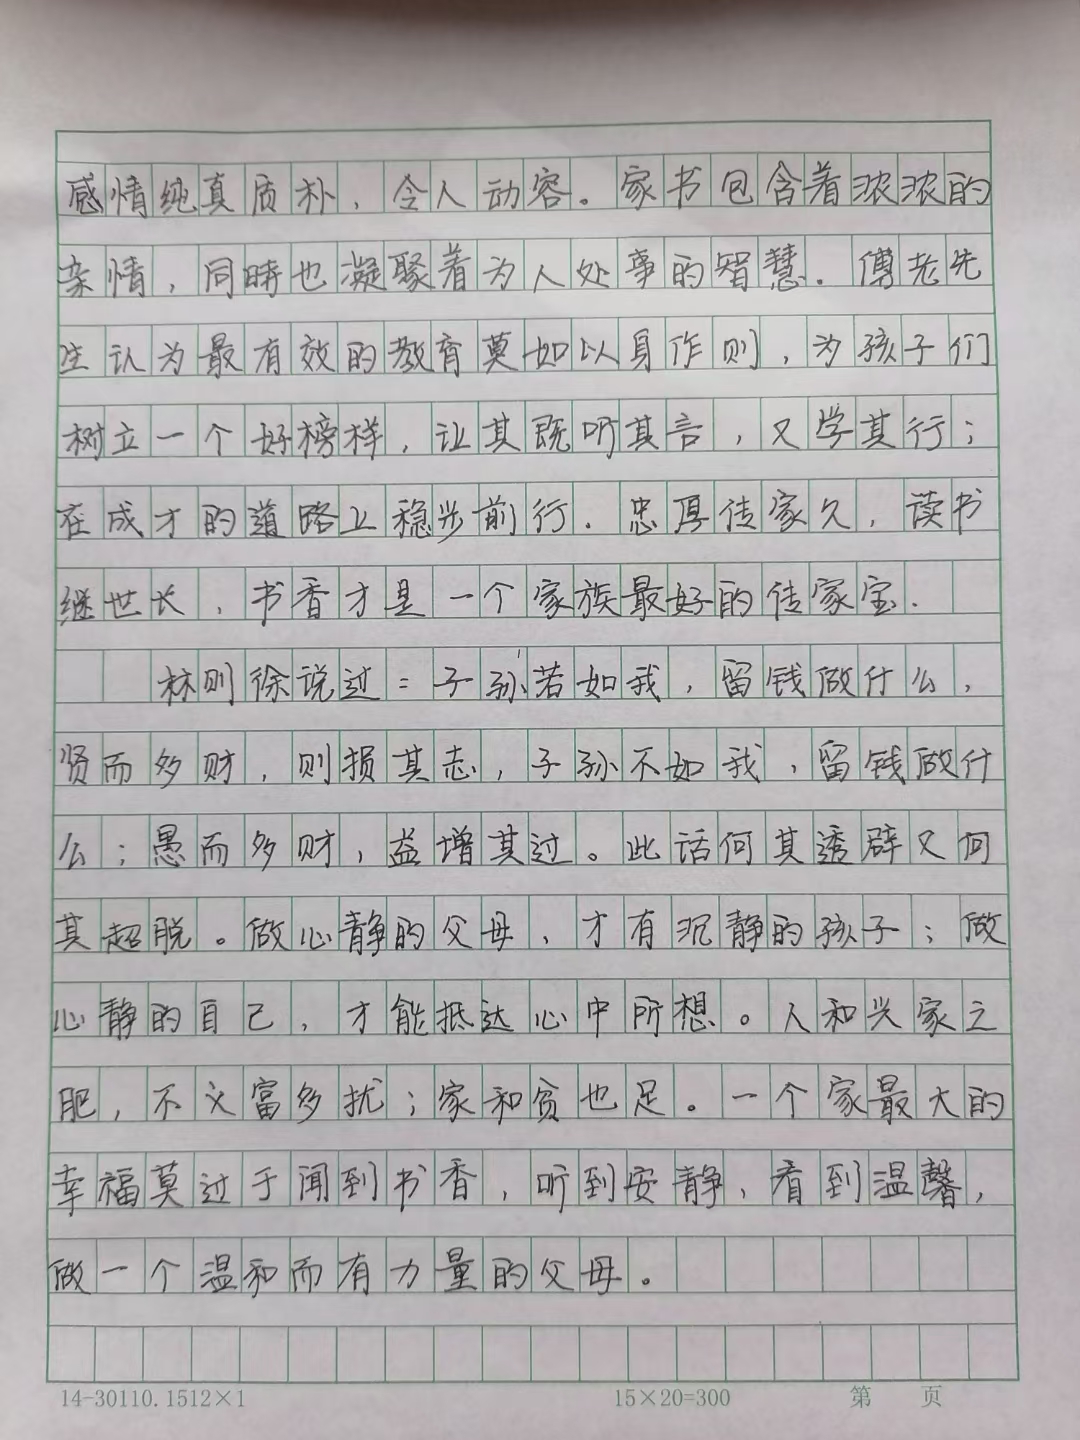 感情纯真质朴，令人动容。家书包含着浓浓的
亲情，同时也凝聚着为人处事的智慧．傅老先
生认为最有效的教育莫如以身作则，为孩子们
树立一个好榜样，让其既听其言，又学其行；
在成才的道路上稳步前行．忠厚传家久，读书
继世长，书香才是一个家族最好的传家宝．
林则徐说过：子孙若如我，留钱做什么，
贤而多财，则损其志，子孙不如我，留钱做什
么；愚而多财，益增其过。此话何其透辟又何
其超脱。做心静的父母，才有沉静的孩子；做
心静的自己，才能抵达心中所想。人和兴家之
肥，不义富多扰；家和贫也足。一个家最大的
幸福莫过于闻到书香，听到安静，看到温馨，
做一个温和而有力量的父母。
14-30110.1512×1 15×20=300 第 页